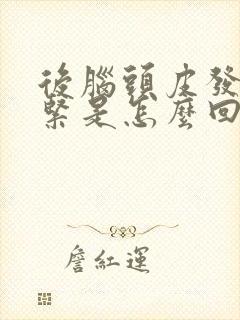 後腦頭皮發
緊是怎麼回
詹紅運